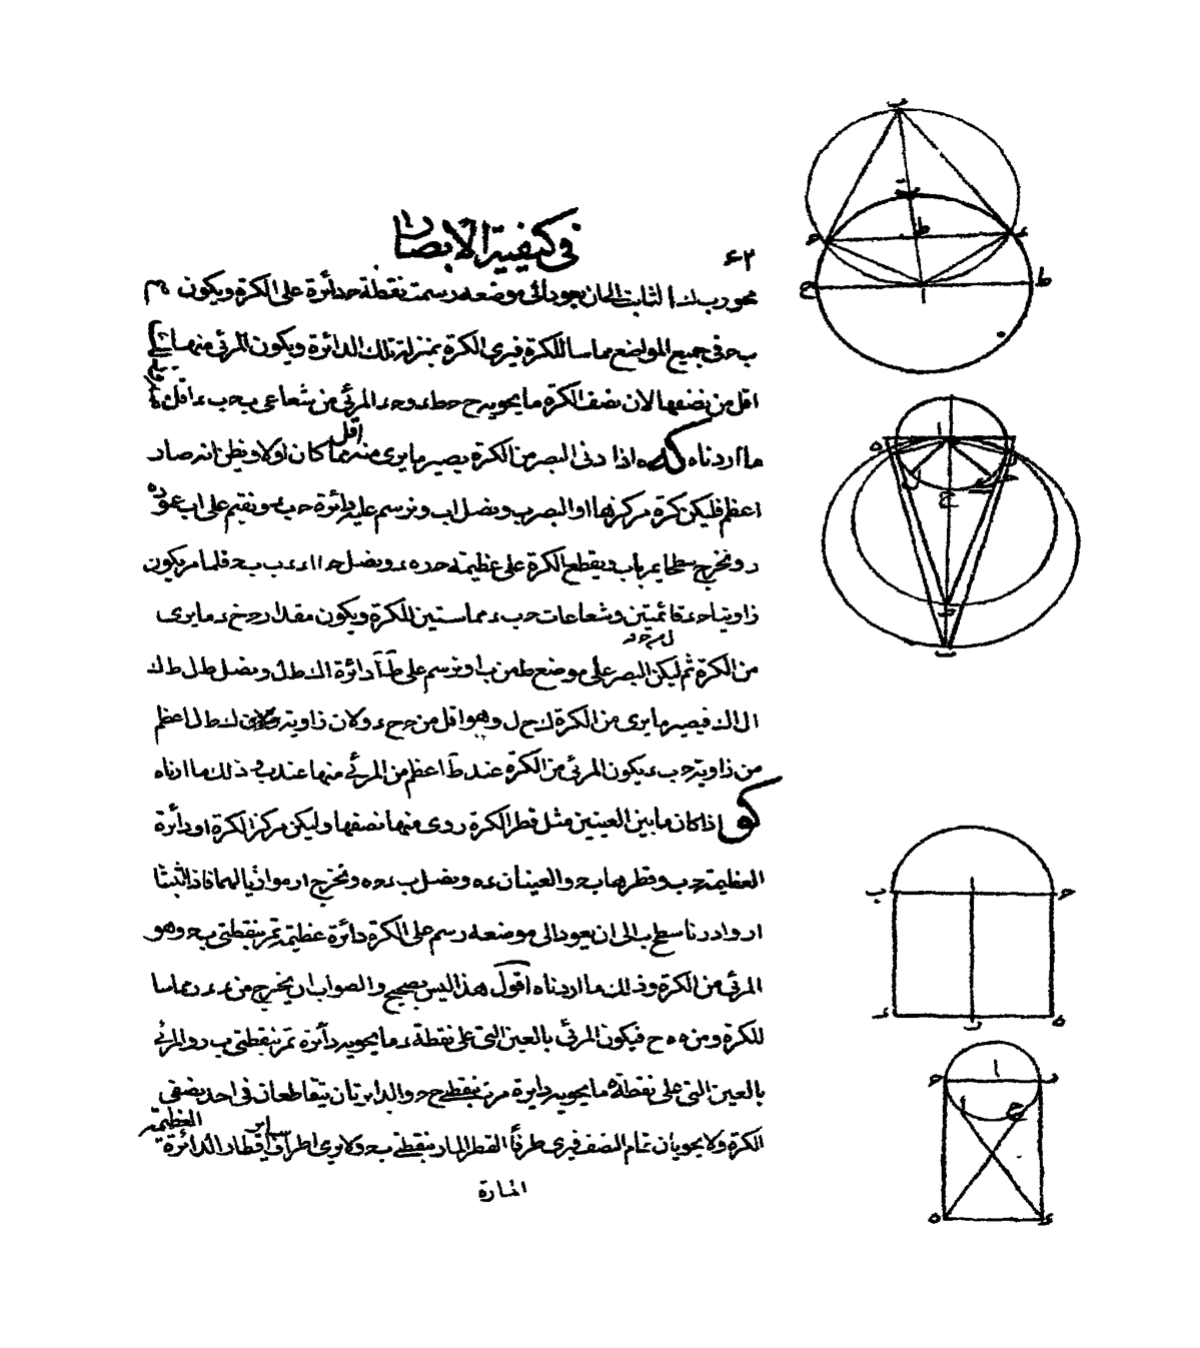 في كيفية الابصار
محور ب ا الثابت الى ان يعود الى موضعه رسمت نقطة ح دائرة على الكرة ويكون
ب ح في جميع المواضع مماسا للكرة فيرى الكرة بمنزلة تلك الدائرة ويكون المرئي منها
اقل من نصفها لان نصف الكرة ما يحويه ح ط و ح ء المرئي من شعاعي ب ح ب ء اقل
ما اردناه كه اذا دنى البصر من الكرة يصير ما يرى منه اقل مما كان اولا ويظن انه صار
اعظم فليكن كرة مركزها ا والبصر ب ونصل ا ب ونرسم عليه دائرة ح ب ء ونقيم على ا ب عمود
ونخرج سطحا يمر ب ا ب ويقطع الكرة على عظيمة ح د ه ء ونصل ح ا ا ء ء ب ب ح فلما مر يكون
زاويتا ح ء قائمتين وشعاعات ح ب ء مماستين للكرة ويكون مقدار ح خ ء ما يرى
من الكرة ثم ليكن البصر على موضع ط من ب ا ونرسم على ط ا دائرة ا ك ط ل ونصل ط ل ط ك
ا ل ا ك فيصير ما يرى من الكرة ك ح ل وهو اقل من ح ح ء ولان زاوية ك ط ل اعظم
من زاوية ح ب ء يكون المرئي من الكرة عند ط اعظم من المرئي منها عند ب وذلك ما اردناه
كو اذا كان ما بين العينين مثل قطر الكرة روى منها نصفها وليكن مركز الكرة ا ودائرة
العظيمة ح ب وقطرها ب ح والعينان ء ه ونصل ب ء ح ه ونخرج ا ر موازيا لهما فاذا اثبتنا
ا ر وادرنا سطح ا ب الى ان يعود الى موضعه رسم على الكرة دائرة عظيمة تمر بنقطتي ب ح وهو
المرئي من الكرة وذلك ما اردناه اقول هذا ليس بصحيح والصواب ان يخرج من ء ء ر مماسا
للكرة ومن ه ه ح فيكون المرئي بالعين التي على نقطة ء ما يحويه دائرة تمر بنقطتي ب ر والمرئي
بالعين التي على نقطة ه ما يحويه دايرة مرت بنقطتي ح ح والدايرتان تتقاطعان في احد نصفي
الكرة ولا يحويان تمام النصف فيرى طرفا القطر المار بنقطتي ب ح ولا يرى اطراف ساير اقطار الدائرة العظيمة